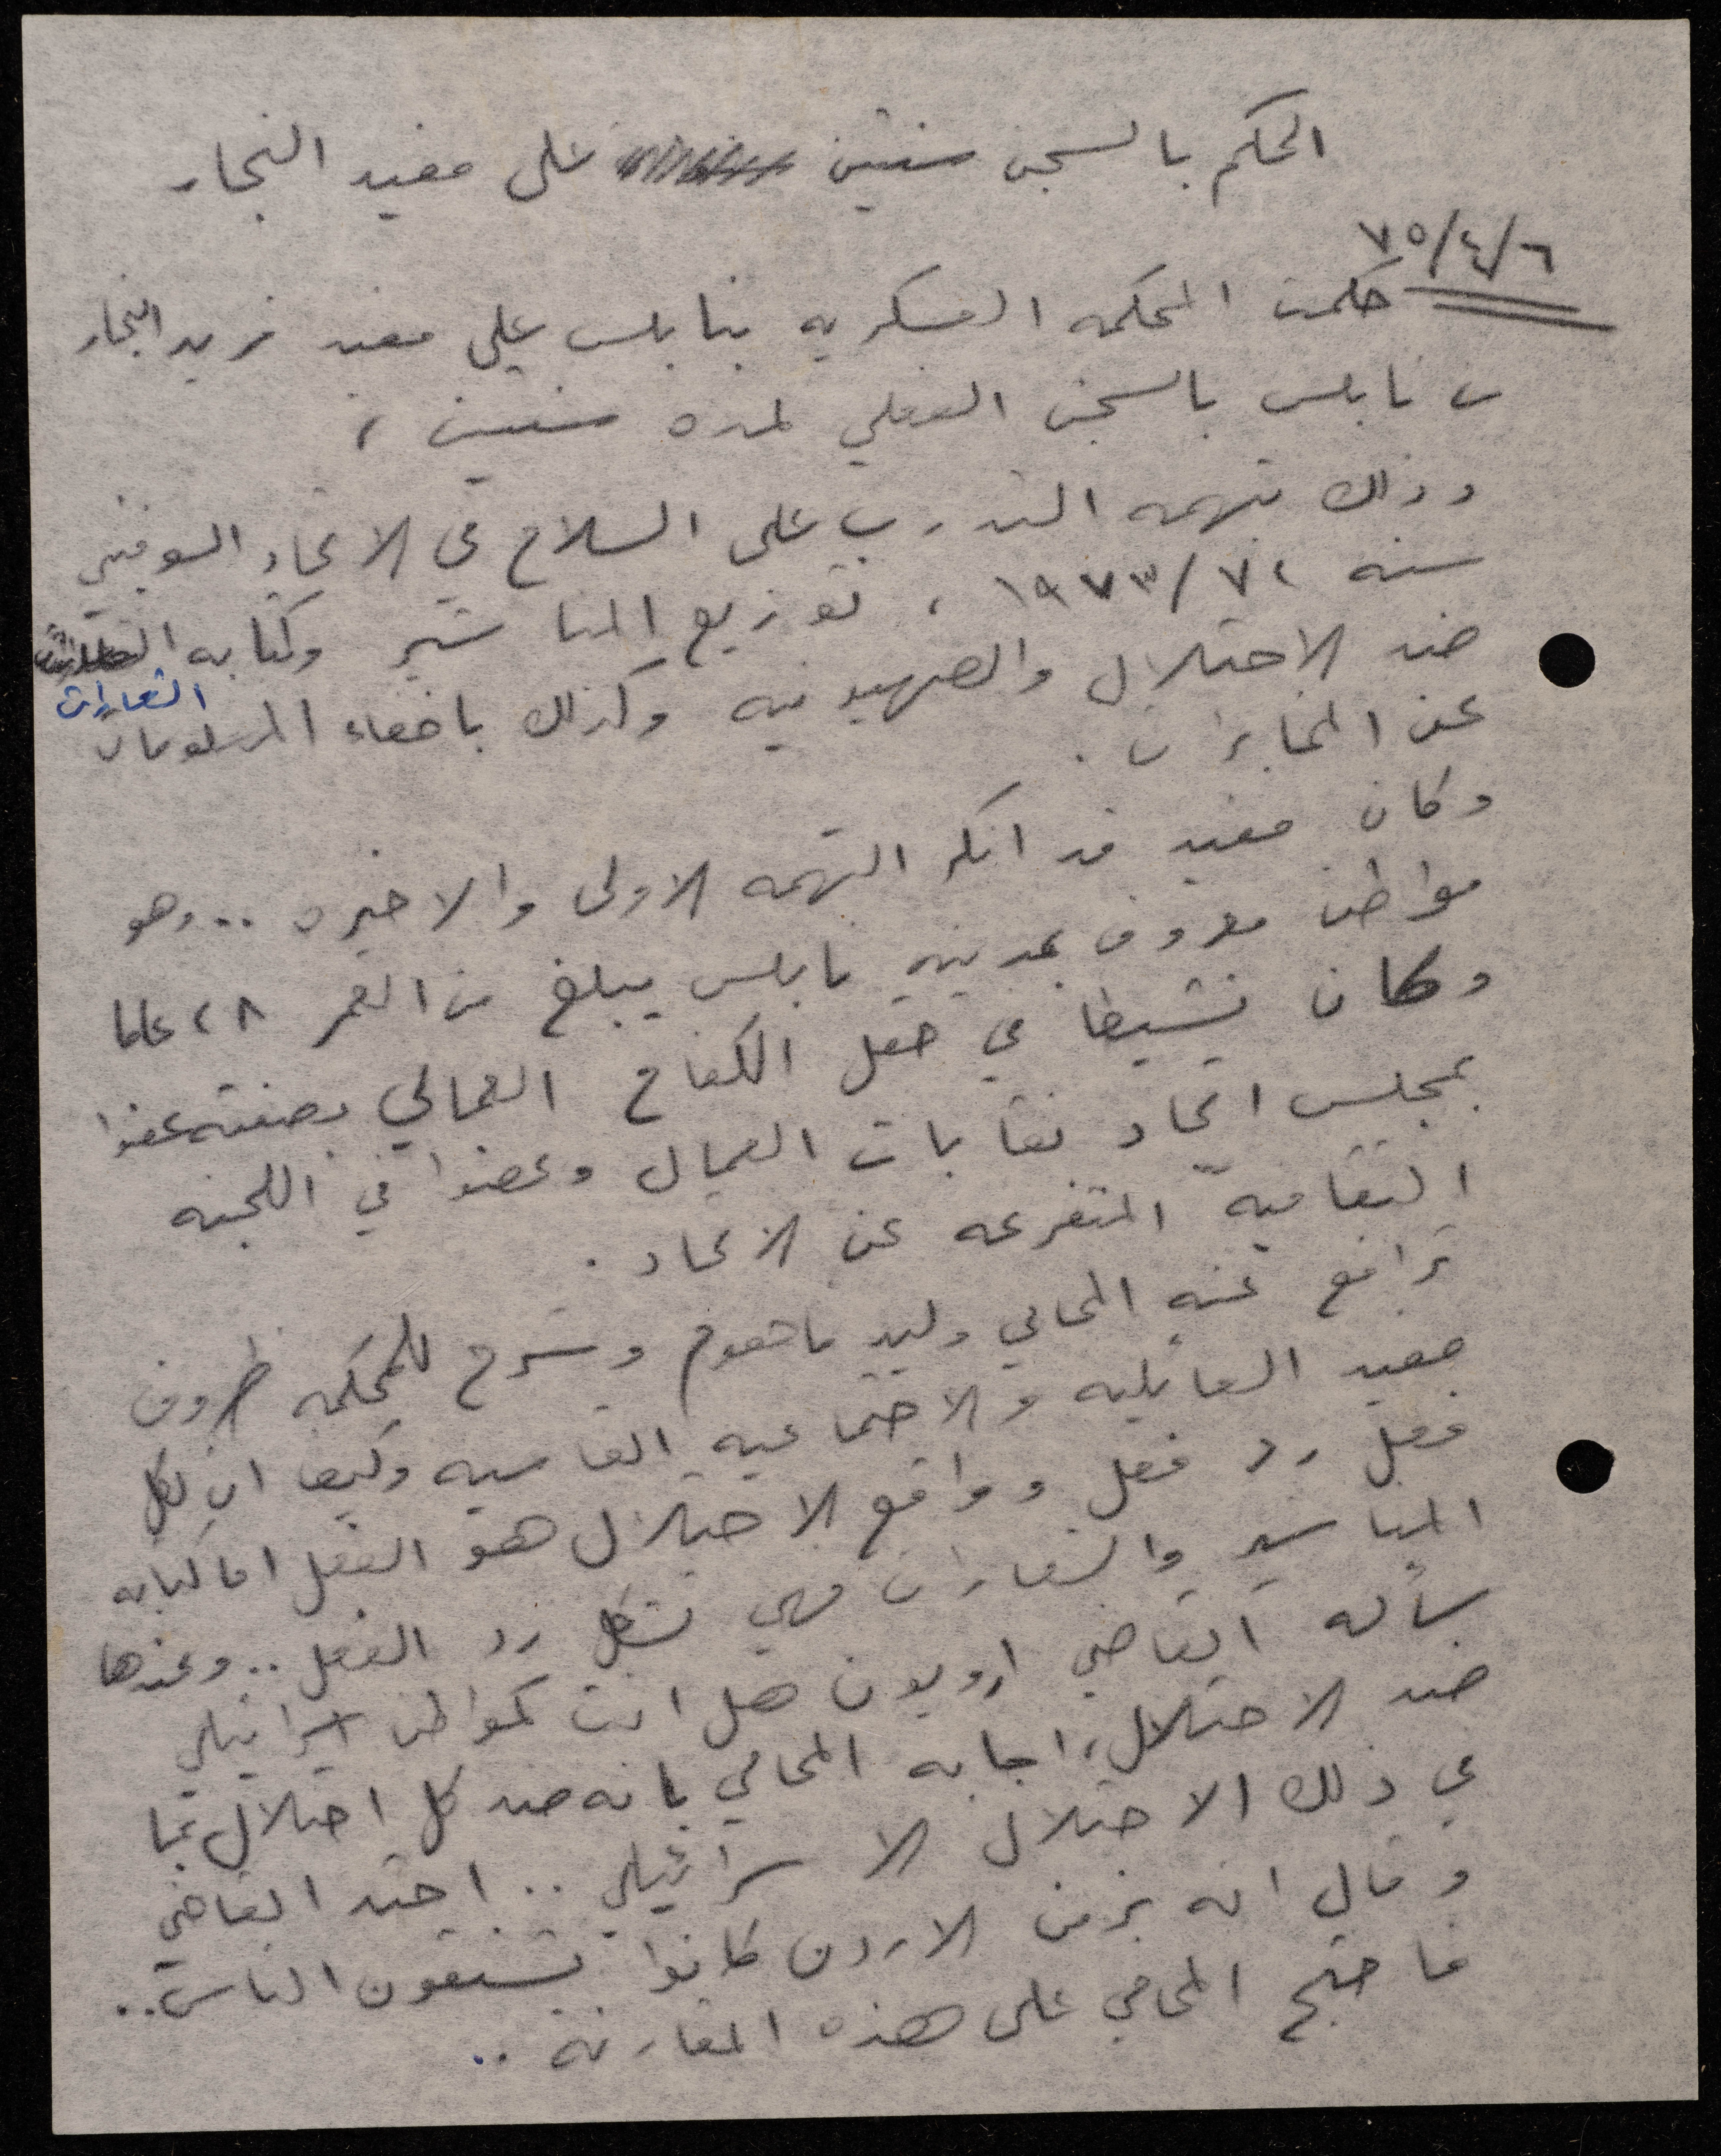 الحكم بالسجن سنتين على مفيد النجار
٧٥/٤/٦
حكمت المحكمه العسكريه بنابلس على مفيد فريد النجار
من نابلس بالسجن الفعلي لمده سنتين ،
وذلك بتهمه التدرب على السلاح في الاتحاد السوفيتي
سنه ٧٢/١٩٧٣ ، توزيع المناشير وكتابه
الشعارات
ضد الاحتلال والصهيونيه وكذلك باخفاء المعلومات
عن المخابرات .
وكان مفيد قد انكر التهمه الاولى والاخيره .. وهو
مواطن معروف بمدينه نابلس يبلغ من العمر ٢٨ عاما
وكان نشيطا في حقل الكفاح العمالي بصفته عضوا
بمجلس اتحاد نقابات العمال وعضوا في اللجنه
الثقافيّه المتفرعه عن الاتحاد .
ترافع عنه المحامي وليد فاهوم وشرح للمحكمه ظروف
مفيد العائليه والاجتماعيه القاسيه وكيف ان لكل
فعل رد فعل وواقع الاحتلال هو الفعل اما كتابه
المناشير والشعارات فهي تشكل رد الفعل .. وعندها
سأله القاضي هل انت كمواطن اسرائيلي
ضد الاحتلال، اجابه المحامي بانه ضد كل احتلال بما
في ذلك الاحتلال الاسرائيلي .. احتد القاضي
وقال انه بزمن الاردن كانوا يشنقون الناس ..
فاحتج المحامي على هذه المقارنه ..